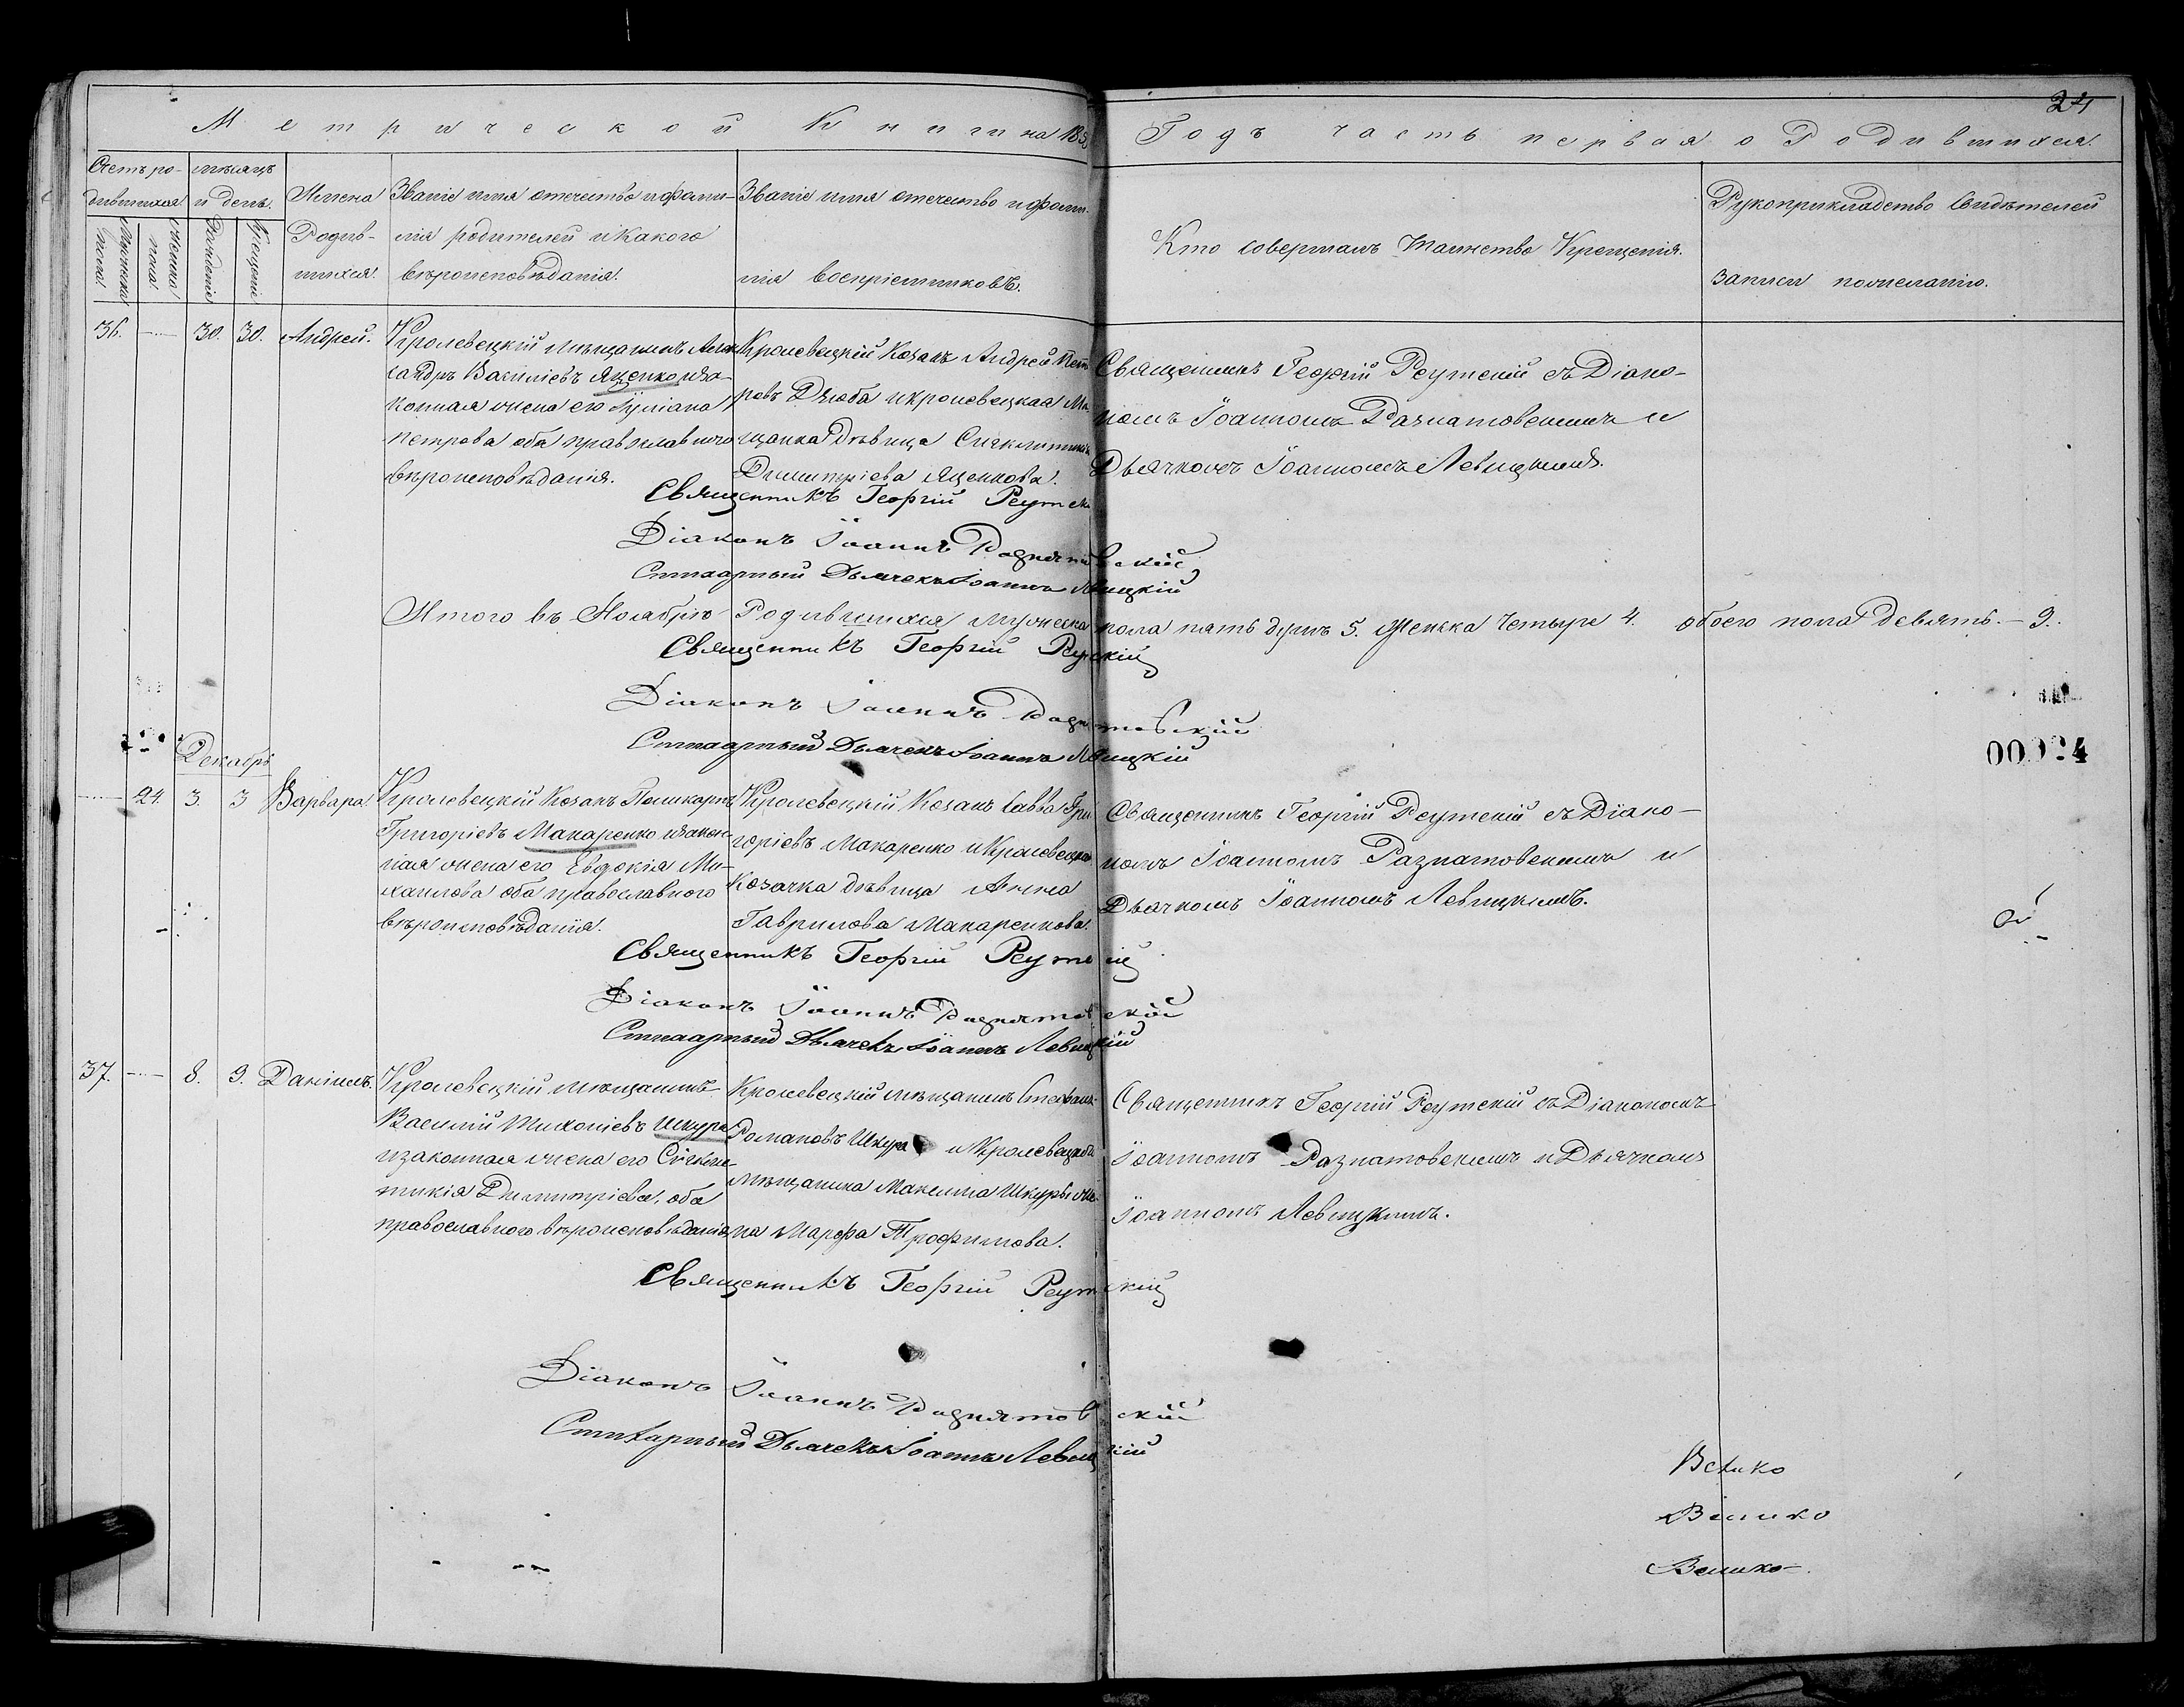 24
Метрической Книги на 185
Годъ часть первая о Родившихся.
Счетъ ро-
дившихся
Мужеска
пола
женска
пола
мѣсяцъ
и день.
Рожденіе
Крещеніе
Имена
Родив-
шихся.
Званіе имя отечество и фами-
лія родителей и какого
вѣроисповѣданія.
Званіе имя отечество и фами-
лія воспріемниковъ.
Кто совершалъ Таинство Крещенія.
Рукоприкладство свидѣтелей
записи пожеланію.
36. 30. 30. Андрей.
Кролевецкій мѣщанинъ Алек
сандръ Василіевъ Яценко иза-
конная жена его Іуліана
Петрова оба православного
вѣроисповѣданія.
Кролевецкій Козакъ Андрей Пет
ровъ Дзюба и кролевецкая Мѣ
щанка дѣвица Сигклитикія
Димитріева Яценкова.
Священникъ Георгій Реутскій съ Діако-
номъ Іоанномъ Разнатовскимъ и
Дьячкомъ Іоанномъ Левицкимъ.
Священникъ Георгій Реутск
Діаконъ Іоаннъ Разнатовскій
Стихарный Дьячекъ Іоаннъ Левицкій
Итого въ Ноябрѣ Родившихся мужеска пола пять душъ 5. женска четыре 4. обоего пола девять. - 9.
Священникъ Георгій Реутскій
Діаконъ Іоаннъ Разнатовскій
Стихарный Дьячекъ Іоаннъ Левицкій
00024
Декабрь
24. 3. 3 Варвара.
Кролевецкій Козакъ Поликарпъ
Григоріевъ Макаренко изакон-
ная жена его Евдокія Ми-
хаилова оба православного
вѣроисповѣданія.
Кролевецкій Козакъ Савва Гри
горіевъ Макаренко и Кролевецкая
Козачка дѣвица Анна
Гаврилова Макаренкова.
Священникъ Георгій Реутскій съ Діако-
номъ Іоанномъ Разнатовскимъ и
Дьячкомъ Іоанномъ Левицкимъ.
Священникъ Георгій Реутскій
Діаконъ Іоаннъ Разнатовскій
Стихарный Дьячекъ Іоаннъ Левицкій
37. 8. 9. Даніилъ.
Кролевецкій мѣщанинъ
Василій Тихоніевъ Шкура
изаконная жена его Сигкли-
тикія Димитріева, оба
православного вѣроисповѣданія
Кролевецкій мѣщанинъ Стефанъ
Романовъ Шкура и Кролевецкаго
мѣщанина Максима Шкуры же-
на Марфа Трофимова.
Священникъ Георгій Реутскій съ Діакономъ
Іоанномъ Разнатовскимъ и Дьячкомъ
Іоанномъ Левицкимъ.
Священникъ Георгій Реутскій
Діаконъ Іоаннъ Разнатовскій
Стихарный Дьячекъ Іоаннъ Левицкій